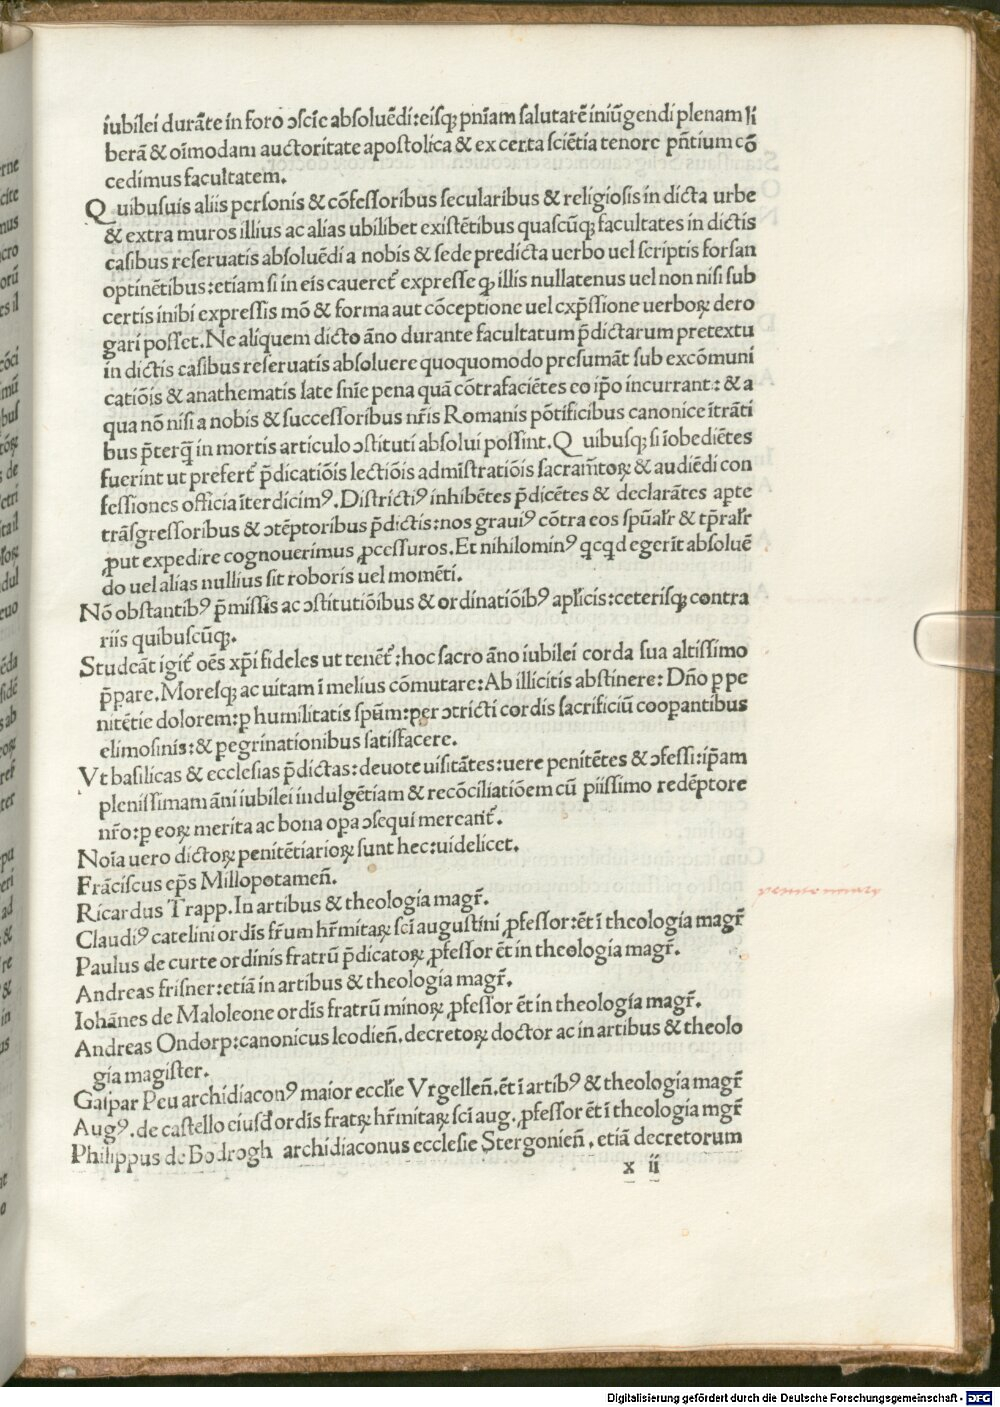 iubilei durãte in foro ɔscie absoluẽdi:eisqꝫ pniam salutarẽ iniũgendi plenam li
berã & oimodam auctoritate apostolica & ex certa sciẽtia tenore pñtium cõ
cedimus facultatem.
Quibusuis aliis personis & cõfessoribus secularibus & religiosis in dicta urbe
& extra muros illius ac alias ubilibet existẽtibus quascũqꝫ facultates in dictis
casibus reseruatis absoluẽdi a nobis & sede predicta uerbo uel scriptis forsan
optinẽtibus:etiam si in eis caueret᷑ expresse ꝙ illis nullatenus uel non nisi sub
certis inibi expressis mõ & forma aut cõceptione uel exp̃ssione uerboꝝ dero
gari posset.Ne aliquem dicto ãno durante facultatum p̃dictarum pretextu
in dictis casibus reseruatis absoluere quoquomodo presumãt sub excõmuni
catiõis & anathematis late snie pena quã cõtrafaciẽtes eo ip̃o incurrant:& a
qua nõ nisi a nobis & successoribus nr̃is Romanis põtificibus canonice ĩtrãti
bus p̃terq̃ in mortis articulo ɔstituti absolui possint.Quibusqꝫ si iobediẽtes
fuerint ut prefert᷑ p̃dicatiõis lectiõis admĩstratiõis sacram̃toꝝ & audiẽdi con
fessiones officia ĩterdicimꝰ.Districtiꝰ inhibẽtes p̃dicẽtes & declarãtes apte
trãsgressoribus & ɔtẽptoribus p̃dictis:nos grauiꝰ cõtra eos spũalr̃ & tp̃ralr̃
ꝓut expedire cognouerimus ꝓcessuros.Et nihilominꝰ qcqd egerĩt absoluẽ
do uel alias nullius sit roboris uel momẽti.
Nõ obstantibꝰ p̃missis ac ɔstitutiõibus & ordinatiõibꝰ aplicis:ceterisqꝫ contra
riis quibuscũqꝫ.
Studeãt igit᷑ oẽs xp̃i fideles ut tenẽt᷑:hoc sacro ãno iubilei corda sua altissimo
p̃pare.Moresqꝫ ac uitam ĩ melius cõmutare:Ab illicitis abstinere:Dño ꝑ pe
nitẽtie dolorem:ꝑ humilitatis spũm:per ɔtricti cordis sacrificiũ coopantibus
elimosinis:& pegrinationibus satisfacere.
Vt basilicas & ecclesias p̃dictas:deuote uisitãtes:uere penitẽtes & ɔfessi:ip̃am
plenissimam ãni iubilei indulgẽtiam & recõciliatiõem cũ piissimo redẽptore
nr̃o:ꝑ eoꝝ merita ac bona opa ɔsequi mereant᷑.
Noĩa uero dictoꝝ penitẽtiarioꝝ sunt hec:uidelicet.
Frãciscus ep̃s Millopotameñ.
Ricardus Trapp.In artibus & theologia magr̃.
Claudiꝰ catelini ordĩs fr̃um hr̃mitaꝝ sci augustini ꝓfessor:ẽt ĩ theologia magr̃
Paulus de curte ordinis fratrũ p̃dicatoꝝ ꝓfessor ẽt in theologia magr̃.
Andreas frisner:etiã in artibus & theologia magr̃.
Iohãnes de Maloleone ordĩs fratrũ minoꝝ ꝓfessor ẽt in theologia magr̃.
Andreas Ondorp:canonicus leodieñ.decretoꝝ doctor ac in artibus & theolo
gia magister.
Gaspar Peu archidiaconꝰ maior ecclie Vrgelleñ.ẽt ĩ artibꝰ & theologia magr̃
Augꝰ.de castello eiusd᷑ ordĩs fratꝝ hr̃mitaꝝ sci aug.ꝓfessor ẽt ĩ theologia mgr̃
Philippus de Bodrogh archidiaconus ecclesie Stergonieñ.etiã decretorum
x ii
Digitalisierung gefördert durch die Deutsche Forschungsgemeinschaft - DFG